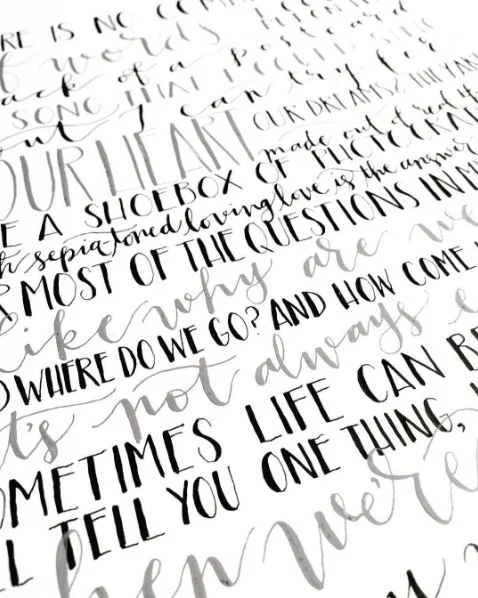 RE IS NO COM
f words
ack of a postcard
SONG THAT I
but I can try for
OUR HEART OUR DREAMS? THE YAR
made out of red th
E A SHOEBOX OF PHOTOGRAP
h sepiatoned loving love is the answer
R MOST OF THE QUESTIONS IN MY
like why are we
D WHERE DO WE GO? AND HOW COME
it's not always e
OMETIMES LIFE CAN BE
L TELL YOU ONE THING,
hen we're